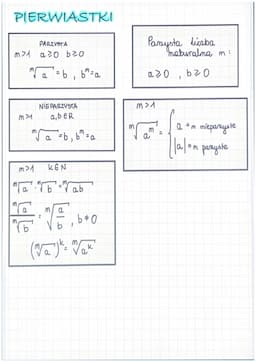 PIERWIASTKI
PARZYSTA
n>1 a≥0 b≥0
ⁿ√a = b, bⁿ = a
Parzysta liczba
naturalna n:
a≥0, b≥0
NIEPARZYSTA
n>1 a,b∈R
ⁿ√a = b, bⁿ = a
n>1
ⁿ√aⁿ = { a ← n nieparzyste
|a| ← n parzyste
n>1 k∈N
ⁿ√a · ⁿ√b = ⁿ√ab
ⁿ√a / ⁿ√b = ⁿ√(a/b), b≠0
(ⁿ√a)ᵏ = ⁿ√aᵏ